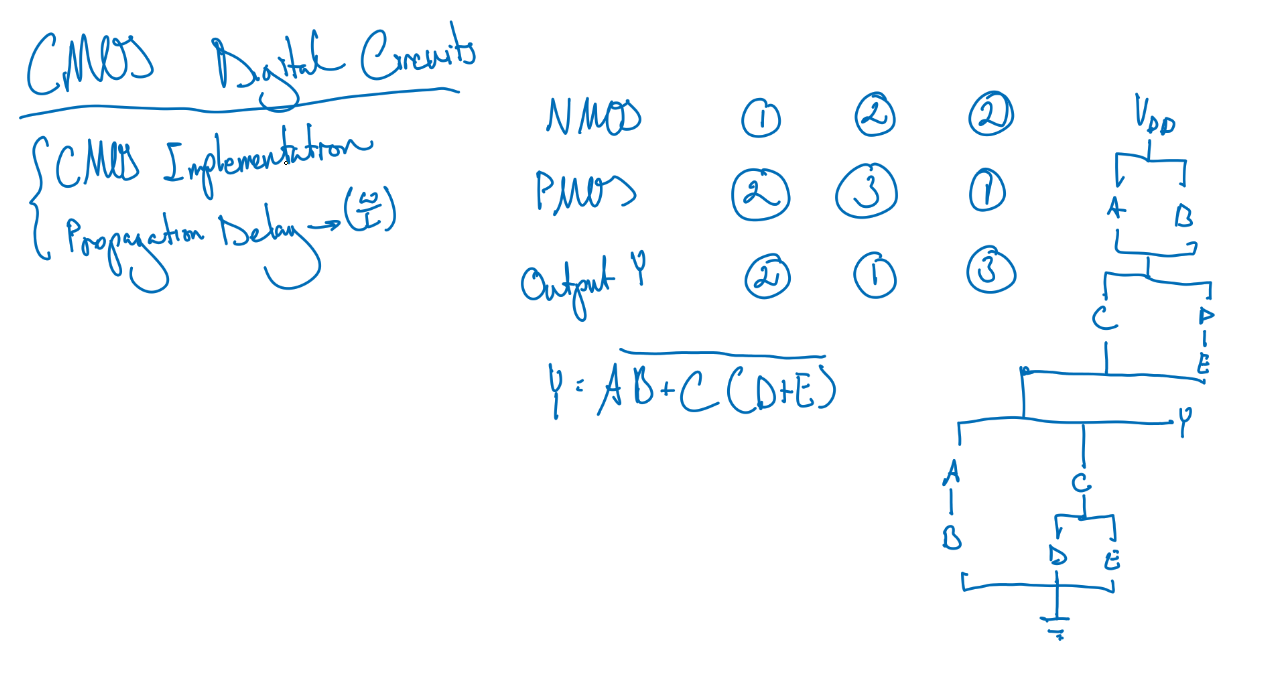 CMOS Digital Circuits
CMOS Implementation
Propagation Delay → (W/L)
NMOS ① ② ②
PMOS ② ③ ①
Output Y ② ① ③
Y = \overline{AB+C(D+E)}
V_DD
A B
C D
E
Y
A C
B D E